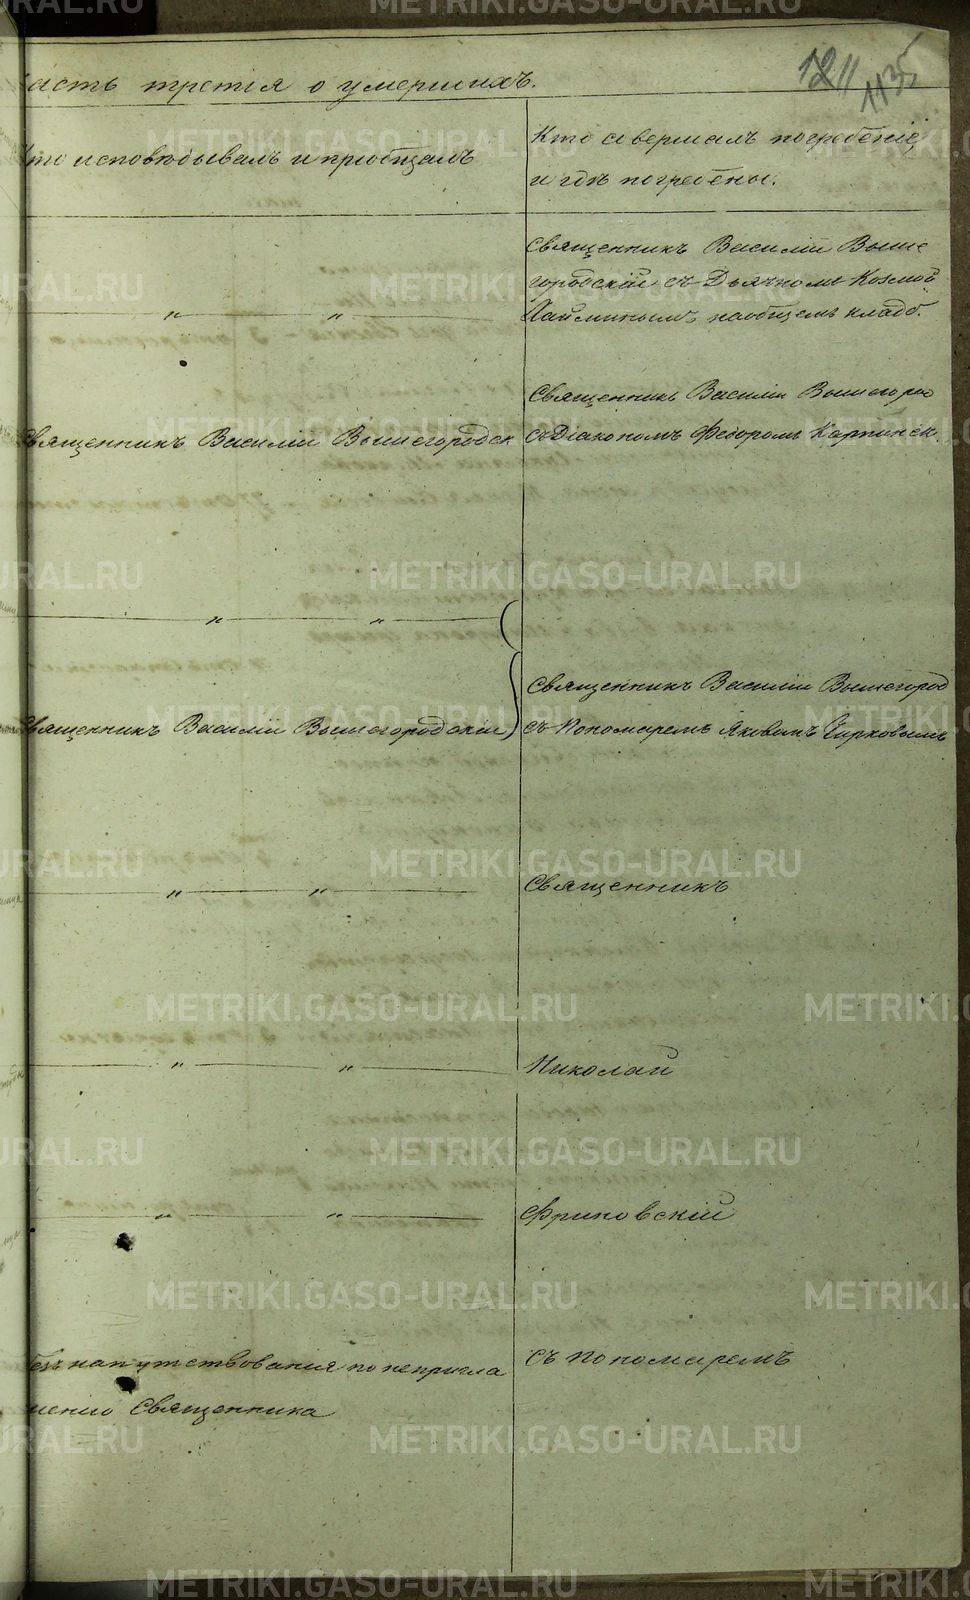 асть третія о умершихъ.
1211
1135
то исповѣдывалъ и пріобщалъ
Кто совершалъ погребеніе
и гдѣ погребены.
Священникъ Василій Выше
городскій съ Дьячкомъ Козмой
наобщемъ кладб.
„ „
Священникъ Василій Вышегородск
Священникъ Василій Вышегород
съ Діакономъ Федоромъ Карпинск.
„ „
Священникъ Василій Вышегородскій
Священникъ Василій Вышегород
съ Пономаремъ Яковомъ Чирковымъ
„ „
Священникъ
„ „
Николай
„ „
Фриновскій
безъ напутствования по непригла
шенію Священника
съ Пономаремъ
METRIKI.GASO-URAL.RU